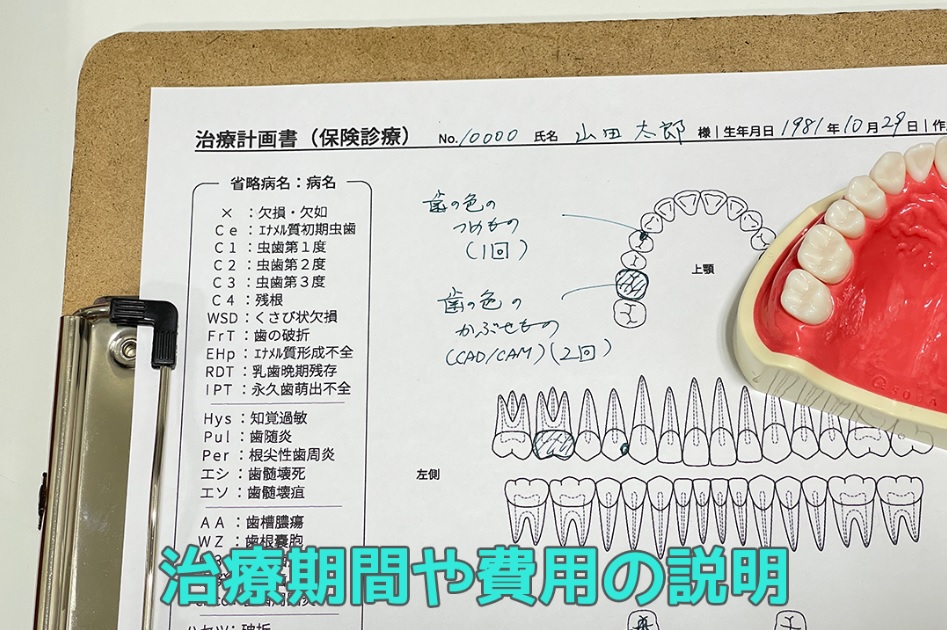 治療計画書（保険診療） No.10000 氏名 山田 太郎 様 | 生年月日 1981年10月29日 | 作
省略病名：病名
× ：欠損・欠如
Ce：ｴﾅﾒﾙ質初期虫歯
C1：虫歯第１度
C2：虫歯第２度
C3：虫歯第３度
C4：残根
WSD：くさび状欠損
FrT：歯の破折
EHp：ｴﾅﾒﾙ質形成不全
RDT：乳歯晩期残存
IPT：永久歯萌出不全
Hys：知覚過敏
Pul：歯随炎
Per：根尖性歯周炎
エシ：歯髄壊死
エソ：歯髄壊疽
AA：歯槽膿瘍
WZ：歯根嚢胞
歯の色の
つめもの
（1回）
歯の色の
かぶせもの
(CAD/CAM)（2回）
上顎
左側
治療期間や費用の説明
ハセツ：破折